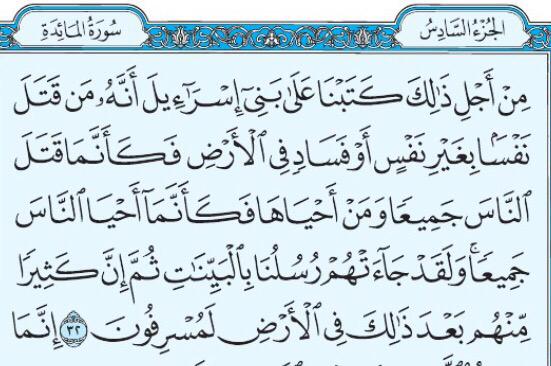 الجُزْءُ السَّادِسُ سُورَةُ المَائِدَةِ
مِنْ أَجْلِ ذَٰلِكَ كَتَبْنَا عَلَىٰ بَنِىٓ إِسْرَٰٓءِيلَ أَنَّهُۥ مَن قَتَلَ
نَفْسًۢا بِغَيْرِ نَفْسٍ أَوْ فَسَادٍ فِى ٱلْأَرْضِ فَكَأَنَّمَا قَتَلَ
ٱلنَّاسَ جَمِيعًا وَمَنْ أَحْيَاهَا فَكَأَنَّمَآ أَحْيَا ٱلنَّاسَ
جَمِيعًا ۚ وَلَقَدْ جَآءَتْهُمْ رُسُلُنَا بِٱلْبَيِّنَٰتِ ثُمَّ إِنَّ كَثِيرًا
مِّنْهُم بَعْدَ ذَٰلِكَ فِى ٱلْأَرْضِ لَمُسْرِفُونَ ٣٢ إِنَّمَا